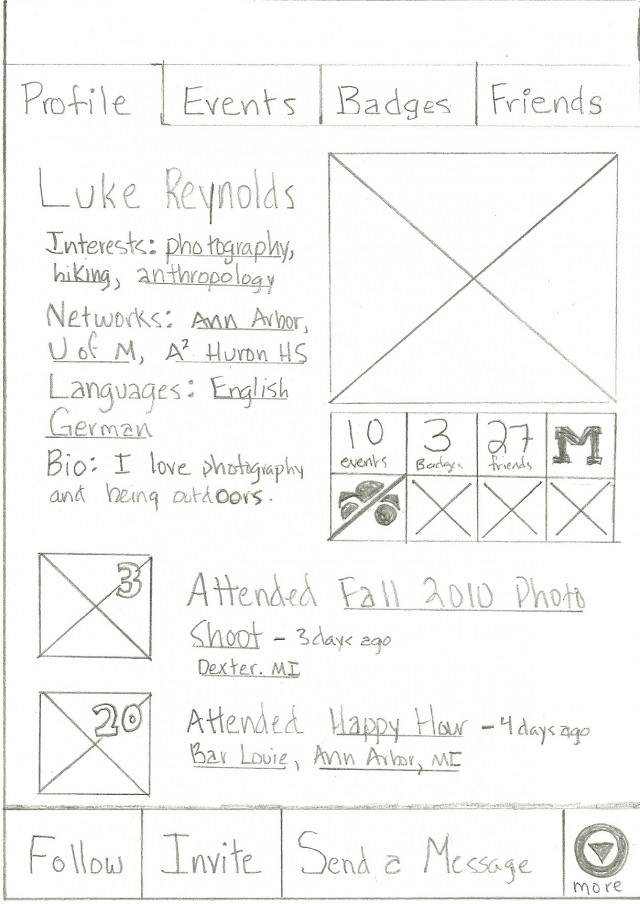 Profile Events Badges Friends
Luke Reynolds
Interests: photography,
hiking, anthropology
Networks: Ann Arbor,
U of M, A² Huron HS
Languages: English
German
Bio: I love photography
and being outdoors.
10 3 27 M
events Badges friends
3
Attended Fall 2010 Photo
Shoot - 3 days ago
Dexter. MI
20
Attended Happy Hour - 4 days ago
Bar Louie, Ann Arbor, MI
Follow Invite Send a Message
more